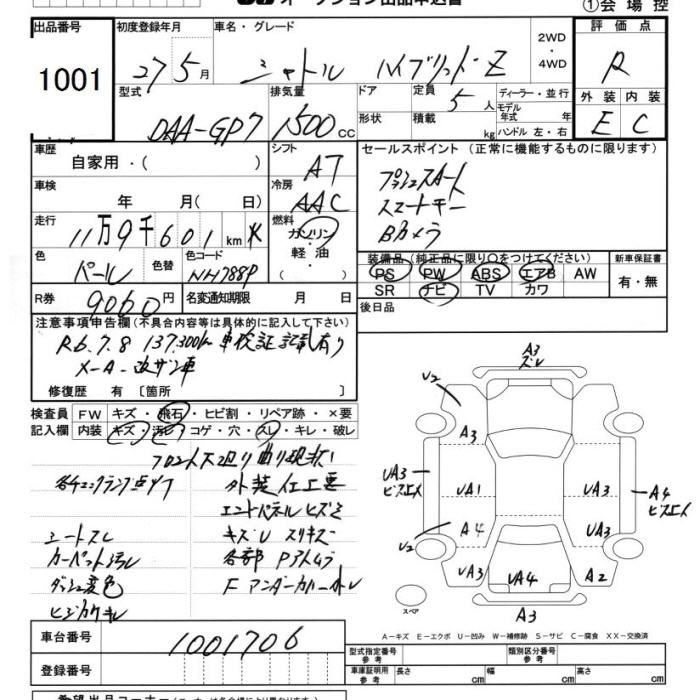 オークション出品申込書
①会場控
出品番号 初度登録年月 車名・グレード 評価点
1001 27年5月 シャトル ハイブリッドZ 2WD・4WD R
型式 排気量 ドア 定員 ディーラー・並行 外装 内装
DAA-GP7 1500cc 5人 モデル年式 年 E C
形状 積載 kg ハンドル 左・右
車歴 シフト セールスポイント (正常に機能するものに限ります)
自家用・( ) AT プッシュスタート
車検 冷房 スマートキー
年 月( 日) AAC Bカメラ
走行 燃料
11万9千601km ガソリン・軽油・
色 色替 色コード 装備品(純正品に限り○をつけてください) 新車保証書
パール NH788P PS PW ABS エアB AW 有・無
R券 9060円 名変通知期限 月 日 SR ナビ TV カワ
後日品
注意事項申告欄(不具合内容等は具体的に記入して下さい)
R6.7.8 137,300km 車検証記載有り
メーター改ザン車
修復歴 有〔箇所 〕
検査員記入欄 FW キズ・飛石・ヒビ割・リペア跡・×要
内装 キズ・汚レ・コゲ・穴・スレ・キレ・破レ
各チェックランプ点灯 外装仕上悪
シートスレ キズU スリキズ
カーペット汚レ 各部Pアトムラ
ダッシュ変色 Fアンダーカバートレ
A3
ズレ
U2
A3
UA3 ビスエス
UA1 UA3
A4 ビスエス
A4 UA3
U2
UA3 UA4 A2
スペア
A3
A-キズ E-エクボ U-凹み W-補修跡 S-サビ C-腐食 XX-交換済
車台番号 1001706
型式指定番号 参考 類別区分番号 参考
登録番号 車庫証明用 参考 長さ cm 幅 cm 高さ cm
希望出品コーナー